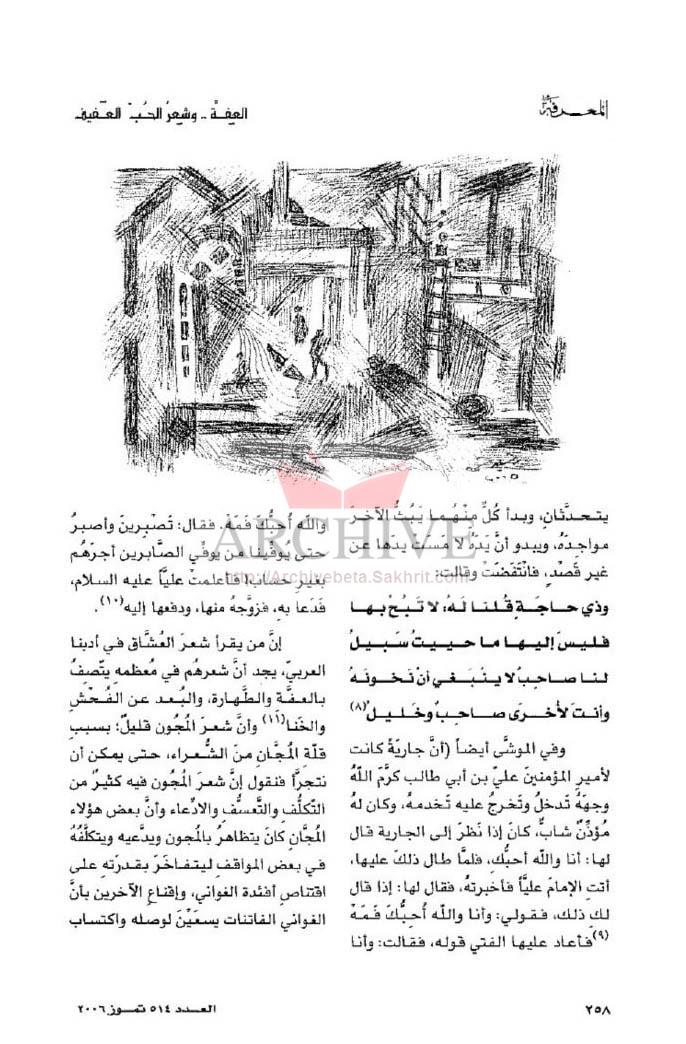 المعرفة
العفة .. وشعرُ الحُبّ العفيف
يتحدَّثانِ، وبدأ كُلٌّ مِنْهُما يَبُثُّ الآخرَ
مواجدَهُ، ويبدو أنَّ يَدَهُ لا مَسَتْ يدها عن
غير قَصْدٍ، فانْتَفَضَتْ وقالت:
وذي حاجَةٍ قُلنا لَهُ: لا تَبُحْ بها
فليسَ إليها ما حييتُ سَبيلُ
لنا صاحبٌ لا ينْبَغي أنْ نَخونَهُ
وأنتَ لأخرَى صاحبٌ وخَليلُ(٨)
وفي الموشَّى أيضاً (أنَّ جاريَةً كانت
لأميرِ المؤمنينَ عليّ بن أبي طالب كرَّمَ اللّهُ
وجهَهُ تدخلُ وتَخرجُ عليه تَخدمهُ، وكان لهُ
مُؤذِّنٌ شابٌّ، كانَ إذا نَظرَ إلى الجارية قال
لها: أنا والله أحبُّك، فلمَّا طال ذلكَ عليها،
أتتِ الإمامَ عليَّاً فأخبرتهُ، فقال لها: إذا قال
لكِ ذلك، فقولي: وأنا والله أُحبُّكَ فَمَهْ
(٩)فأعاد عليها الفتي قوله، فقالت: وأنا
والله أُحبُّكَ فَمَهْ. فقال: تَصْبِرينَ وأصبرُ
حتى يوفّينا من يوفِّي الصَّابرين أجرَهُم
بغيرِ حساب، فأعلمتْ عليَّاً عليه السلام،
فَدَعا بهِ، فزوَّجهُ منها، ودفعها إليه(١٠).
إنَّ من يقرأ شعرَ العُشَّاق في أدبنا
العربيّ، يجد أنَّ شعرهُم في مُعظمهِ يتّصفُ
بالعفَّة والطَّهارة، والبُعد عن الفُحْش
والخَنا(١١) وأنَّ شعرَ المُجون قليلٌ؛ بسببِ
قلّة المُجَّانِ منَ الشُّعراء، حتى يمكن أن
نتجرَّأ فنقول إنَّ شعرَ المُجون فيه كثيرٌ من
التّكلُّف والتَّعسُّف والادِّعاء وأنَّ بعض هؤلاء
المُجَّان كانَ يتظاهرُ بالمجون ويدَّعيه ويتكلَّفُهُ
في بعض المواقف ليتفاخَرَ بقدرَته على
اقتناصِ أفئدة الغواني، وإقناعِ الآخرين بأنَّ
الغواني الفاتنات يسعَيْنَ لوصله واكتساب
ARCHIVE
http://Archivebeta.Sakhrit.com
٢٥٨
العدد ٥١٤ تموز ٢٠٠٦